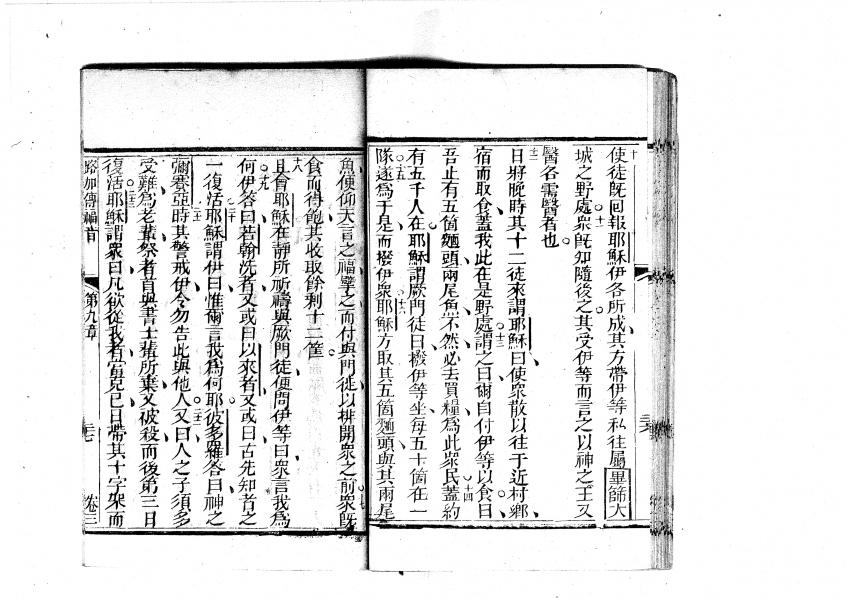 十 使徒旣回報耶穌伊各所成其方帶伊等私往屬畢篩大
城之野處十一衆旣知隨後之其受伊等而言之以神之王又
醫各需醫者也
十二日將晚時其十二徒來謂耶穌曰使衆散以往于近村鄉
宿而取食蓋我此在是野處十三謂之曰爾自付伊等以食曰
吾止有五箇麵頭兩尾魚不然必去買糧爲此衆民十四蓋約
有五千人在耶穌謂厥門徒曰撥伊等坐每五十箇在一
隊十五遂爲于是而撥伊衆十六耶穌方取其五箇麵頭與其兩尾
魚便仰天言之福擘之而付與門徒以排開衆之前十七衆旣
食而得飽其收取餘剩十二筐
十八且會耶穌在靜所祈禱與厥門徒便問伊等曰衆言我爲
何十九伊答曰若翰洗者又或曰以來者又或曰古先知者之
一復活二十耶穌謂伊曰惟爾言我爲何耶彼多羅答曰神之
彌賽亞二十一時其警戒伊令勿告此與他人二十二又曰人之子須多
受難爲老輩祭者首與書士輩所棄又被殺而後第三日
復活二十三耶穌謂衆曰凡欲從我者宜克己日帶其十字架而
路加傳福音 第九章 二七 卷三
二六